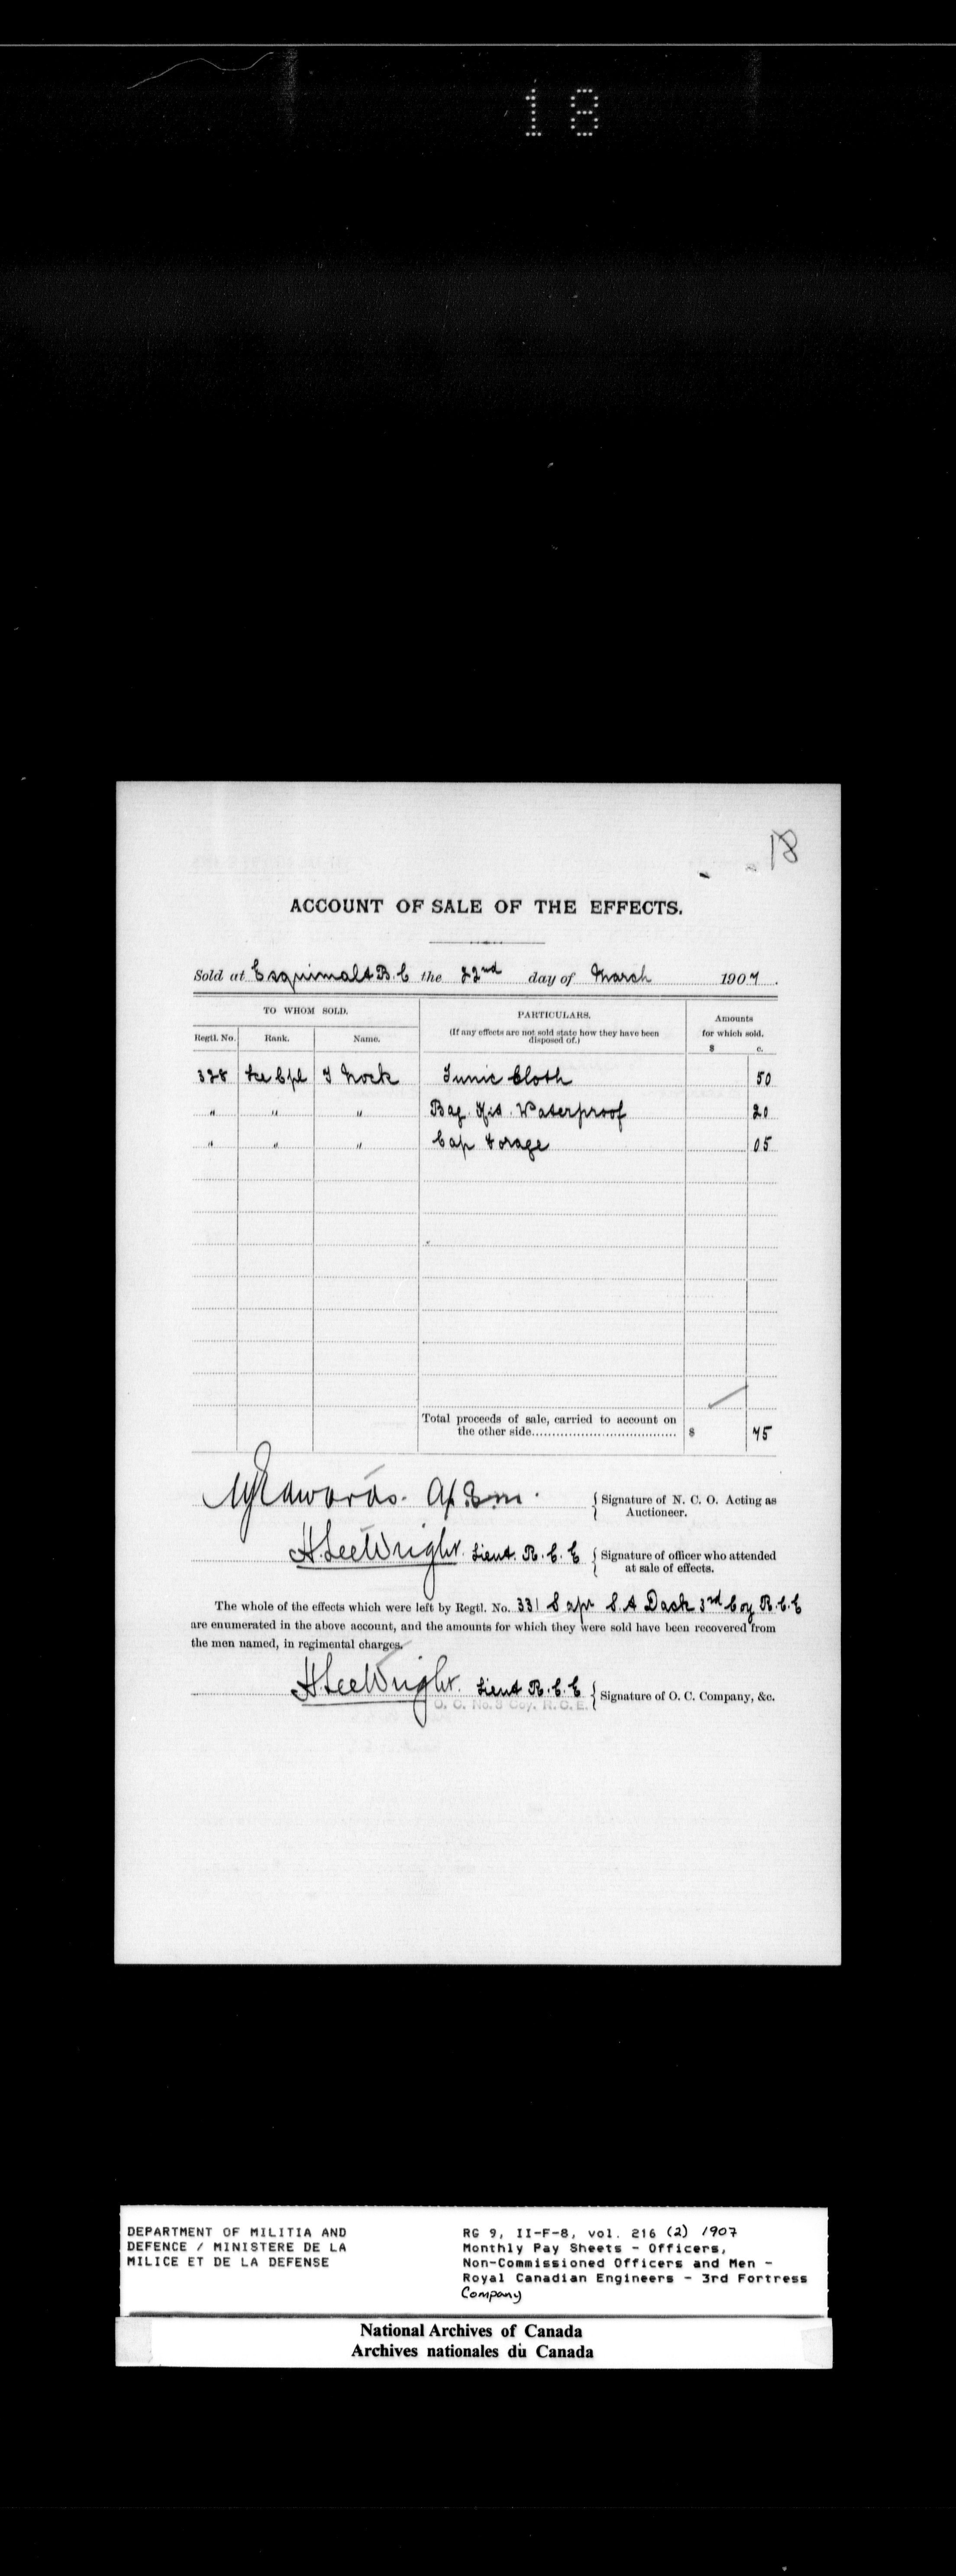 18
18
ACCOUNT OF SALE OF THE EFFECTS.
Sold at Esquimalt B.C the 22nd day of March 1907.
TO WHOM SOLD. PARTICULARS. Amounts
Regtl. No. Rank. Name. (If any effects are not sold state how they have been disposed of.) for which sold.
$ c.
328 Cpl Nock Tunic Cloth 50
" " " Bag Kit Waterproof 20
" " " Cap Forage 05
Total proceeds of sale, carried to account on
the other side. $ 75
Edwards. { Signature of N. C. O. Acting as
Auctioneer.
H. Lee Wright. Lieut. R.C.E { Signature of officer who attended
at sale of effects.
The whole of the effects which were left by Regtl. No. 331 Sapr S.A Dack 3rd Coy R.C.E
are enumerated in the above account, and the amounts for which they were sold have been recovered from
the men named, in regimental charges.
H Lee Wright. Lieut R.C.E { Signature of O. C. Company, &c.
O. C. No.3 Coy. R.C.E.
DEPARTMENT OF MILITIA AND
DEFENCE / MINISTERE DE LA
MILICE ET DE LA DEFENSE
RG 9, II-F-8, vol. 216 (2) 1907
Monthly Pay Sheets - Officers,
Non-Commissioned Officers and Men -
Royal Canadian Engineers - 3rd Fortress
Company
National Archives of Canada
Archives nationales du Canada